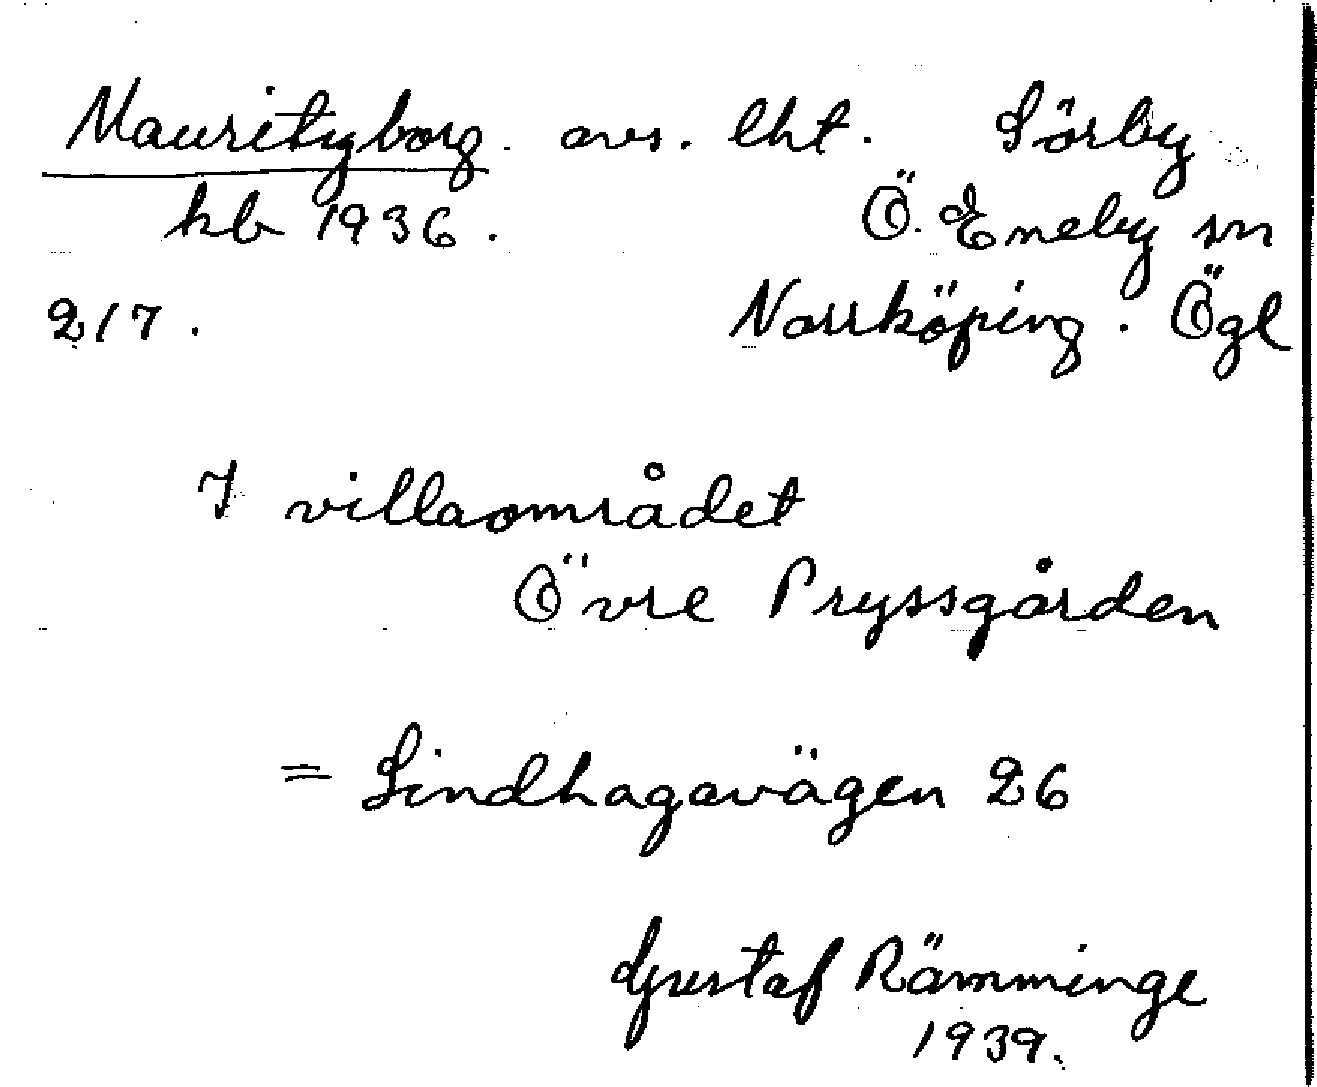 Mauritzborg. avs. lht. Sörby
kb 1936. Ö. Eneby sn
217. Norrköping. Ögl
I villaområdet
Övre Pryssgården
= Lindhagavägen 26
Gustaf Rämminge
1939.